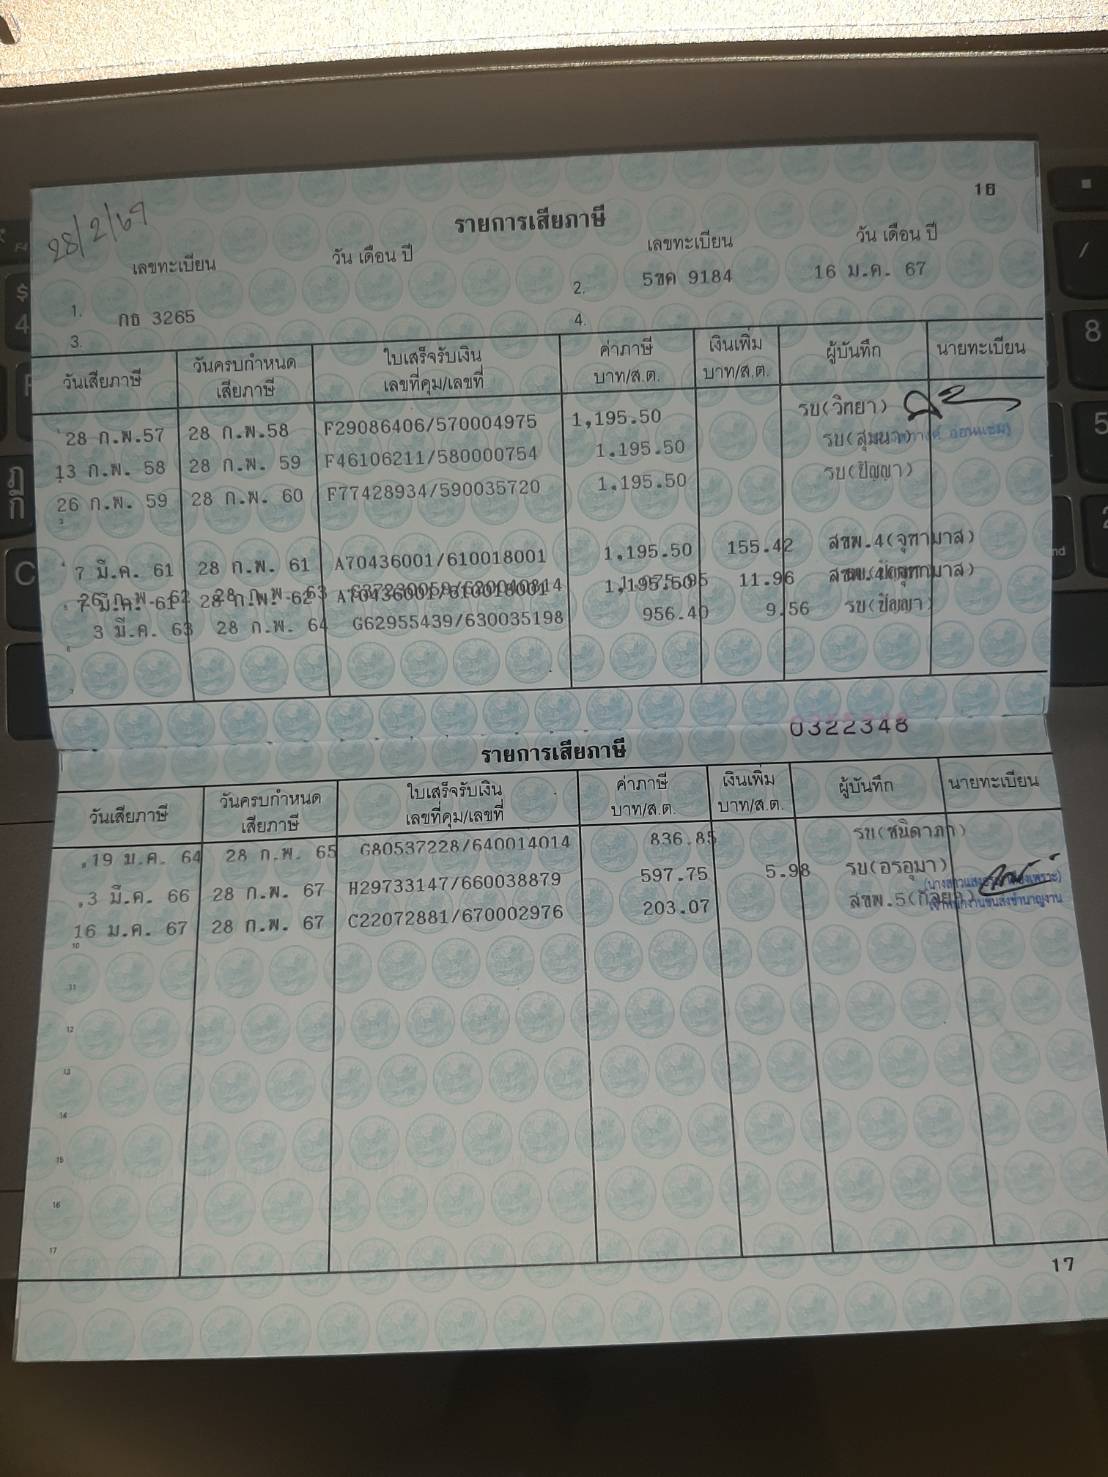 18
28/2/69
รายการเสียภาษี
เลขทะเบียน วัน เดือน ปี เลขทะเบียน วัน เดือน ปี
1. กธ 3265 2. 5ขค 9184 16 ม.ค. 67
3. 4.
วันเสียภาษี วันครบกำหนดเสียภาษี ใบเสร็จรับเงิน เลขที่คุม/เลขที่ ค่าภาษี บาท/ส.ต. เงินเพิ่ม บาท/ส.ต. ผู้บันทึก นายทะเบียน
28 ก.พ.57 28 ก.พ.58 F29086406/570004975 1,195.50 รบ(วิทยา)
13 ก.พ. 58 28 ก.พ. 59 F46106211/580000754 1.195.50
26 ก.พ. 59 28 ก.พ. 60 F77428934/590035720 1.195.50 รบ(ปัญญา)
7 มี.ค. 61 28 ก.พ. 61 A70436001/610018001 1,195.50 155.42 สขพ.4(จุฑามาส)
7 มี.ค. 61 28 ก.พ. 62 A70436001/610018001 1,195.50 11.96
3 มี.ค. 63 28 ก.พ. 64 G62955439/630035198 956.40 9.56 รบ(ปัญญา)
0322348
รายการเสียภาษี
วันเสียภาษี วันครบกำหนดเสียภาษี ใบเสร็จรับเงิน เลขที่คุม/เลขที่ ค่าภาษี บาท/ส.ต. เงินเพิ่ม บาท/ส.ต. ผู้บันทึก นายทะเบียน
19 ม.ค. 64 28 ก.พ. 65 G80537228/640014014 836.85 รบ(ชนิดาภา)
3 มี.ค. 66 28 ก.พ. 67 H29733147/660038879 597.75 5.98 รบ(อรอุมา)
16 ม.ค. 67 28 ก.พ. 67 C22072881/670002976 203.07 สขพ.5
10
11
12
13
14
15
16
17
17